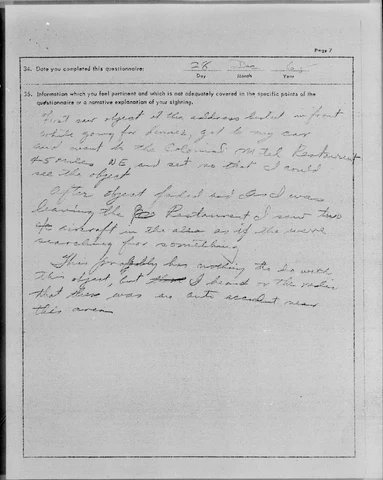 Page 7
34. Date you completed this questionnaire: 28 Dec
Day Month Year
35. Information which you feel pertinent and which is not adequately covered in the specific points of the
questionnaire or a narrative explanation of your sighting.
First saw object at the address listed in front
while going for dinner, got to my car
and went to the Colonial Motel Restaurant
miles NE, and set so that I could
see the object
After object faded and I was
leaving the Restaurant I saw two
aircraft in the as if the were
searching for something
This probably has nothing the do with
this object, but I heard on the radio
that there was an auto accident near
this area